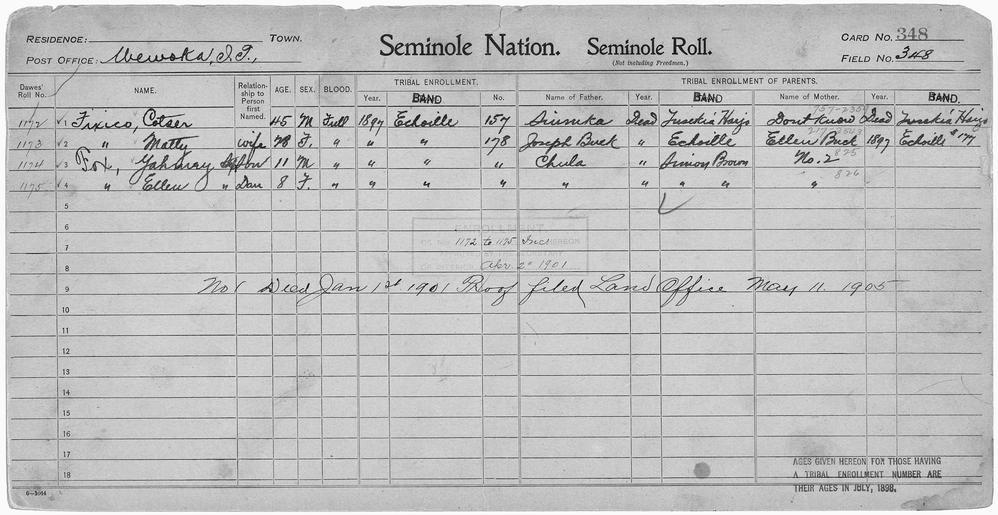 RESIDENCE: TOWN. Seminole Nation. Seminole Roll. CARD NO. 348
POST OFFICE: Wewoka, I.T., (Not including Freedmen.) FIELD NO. 348
Dawes' Roll No. NAME. Relationship to Person first Named. AGE. SEX. BLOOD. TRIBAL ENROLLMENT. TRIBAL ENROLLMENT OF PARENTS.
Year. BAND No. Name of Father. Year. BAND Name of Mother. Year. BAND.
1172 1 Fixico, Cotser 45 M Full 1897 Echoille 157 Dead Dont Know Dead
1173 2 " Matty wife F. " " " 178 Joseph Buck " Echoille Ellen Buck 1897 Echoille #177
1174 3 Fox, Son 11 M " " " " Chula " Simon Brown No. 2 825
1175 4 " Ellen " Dau 8 F. " " " " " " " " " 826
5
6
ENROLLMENT
7 1172 to 1175 Incl HEREON
8 Apr 2" 1901
9 No 1 Died Jan 1st 1901 Proof filed Land Office May 11 1905
10
11
12
13
14
15
16
17
18
AGES GIVEN HEREON FOR THOSE HAVING
A TRIBAL ENROLLMENT NUMBER ARE
THEIR AGES IN JULY, 1898.